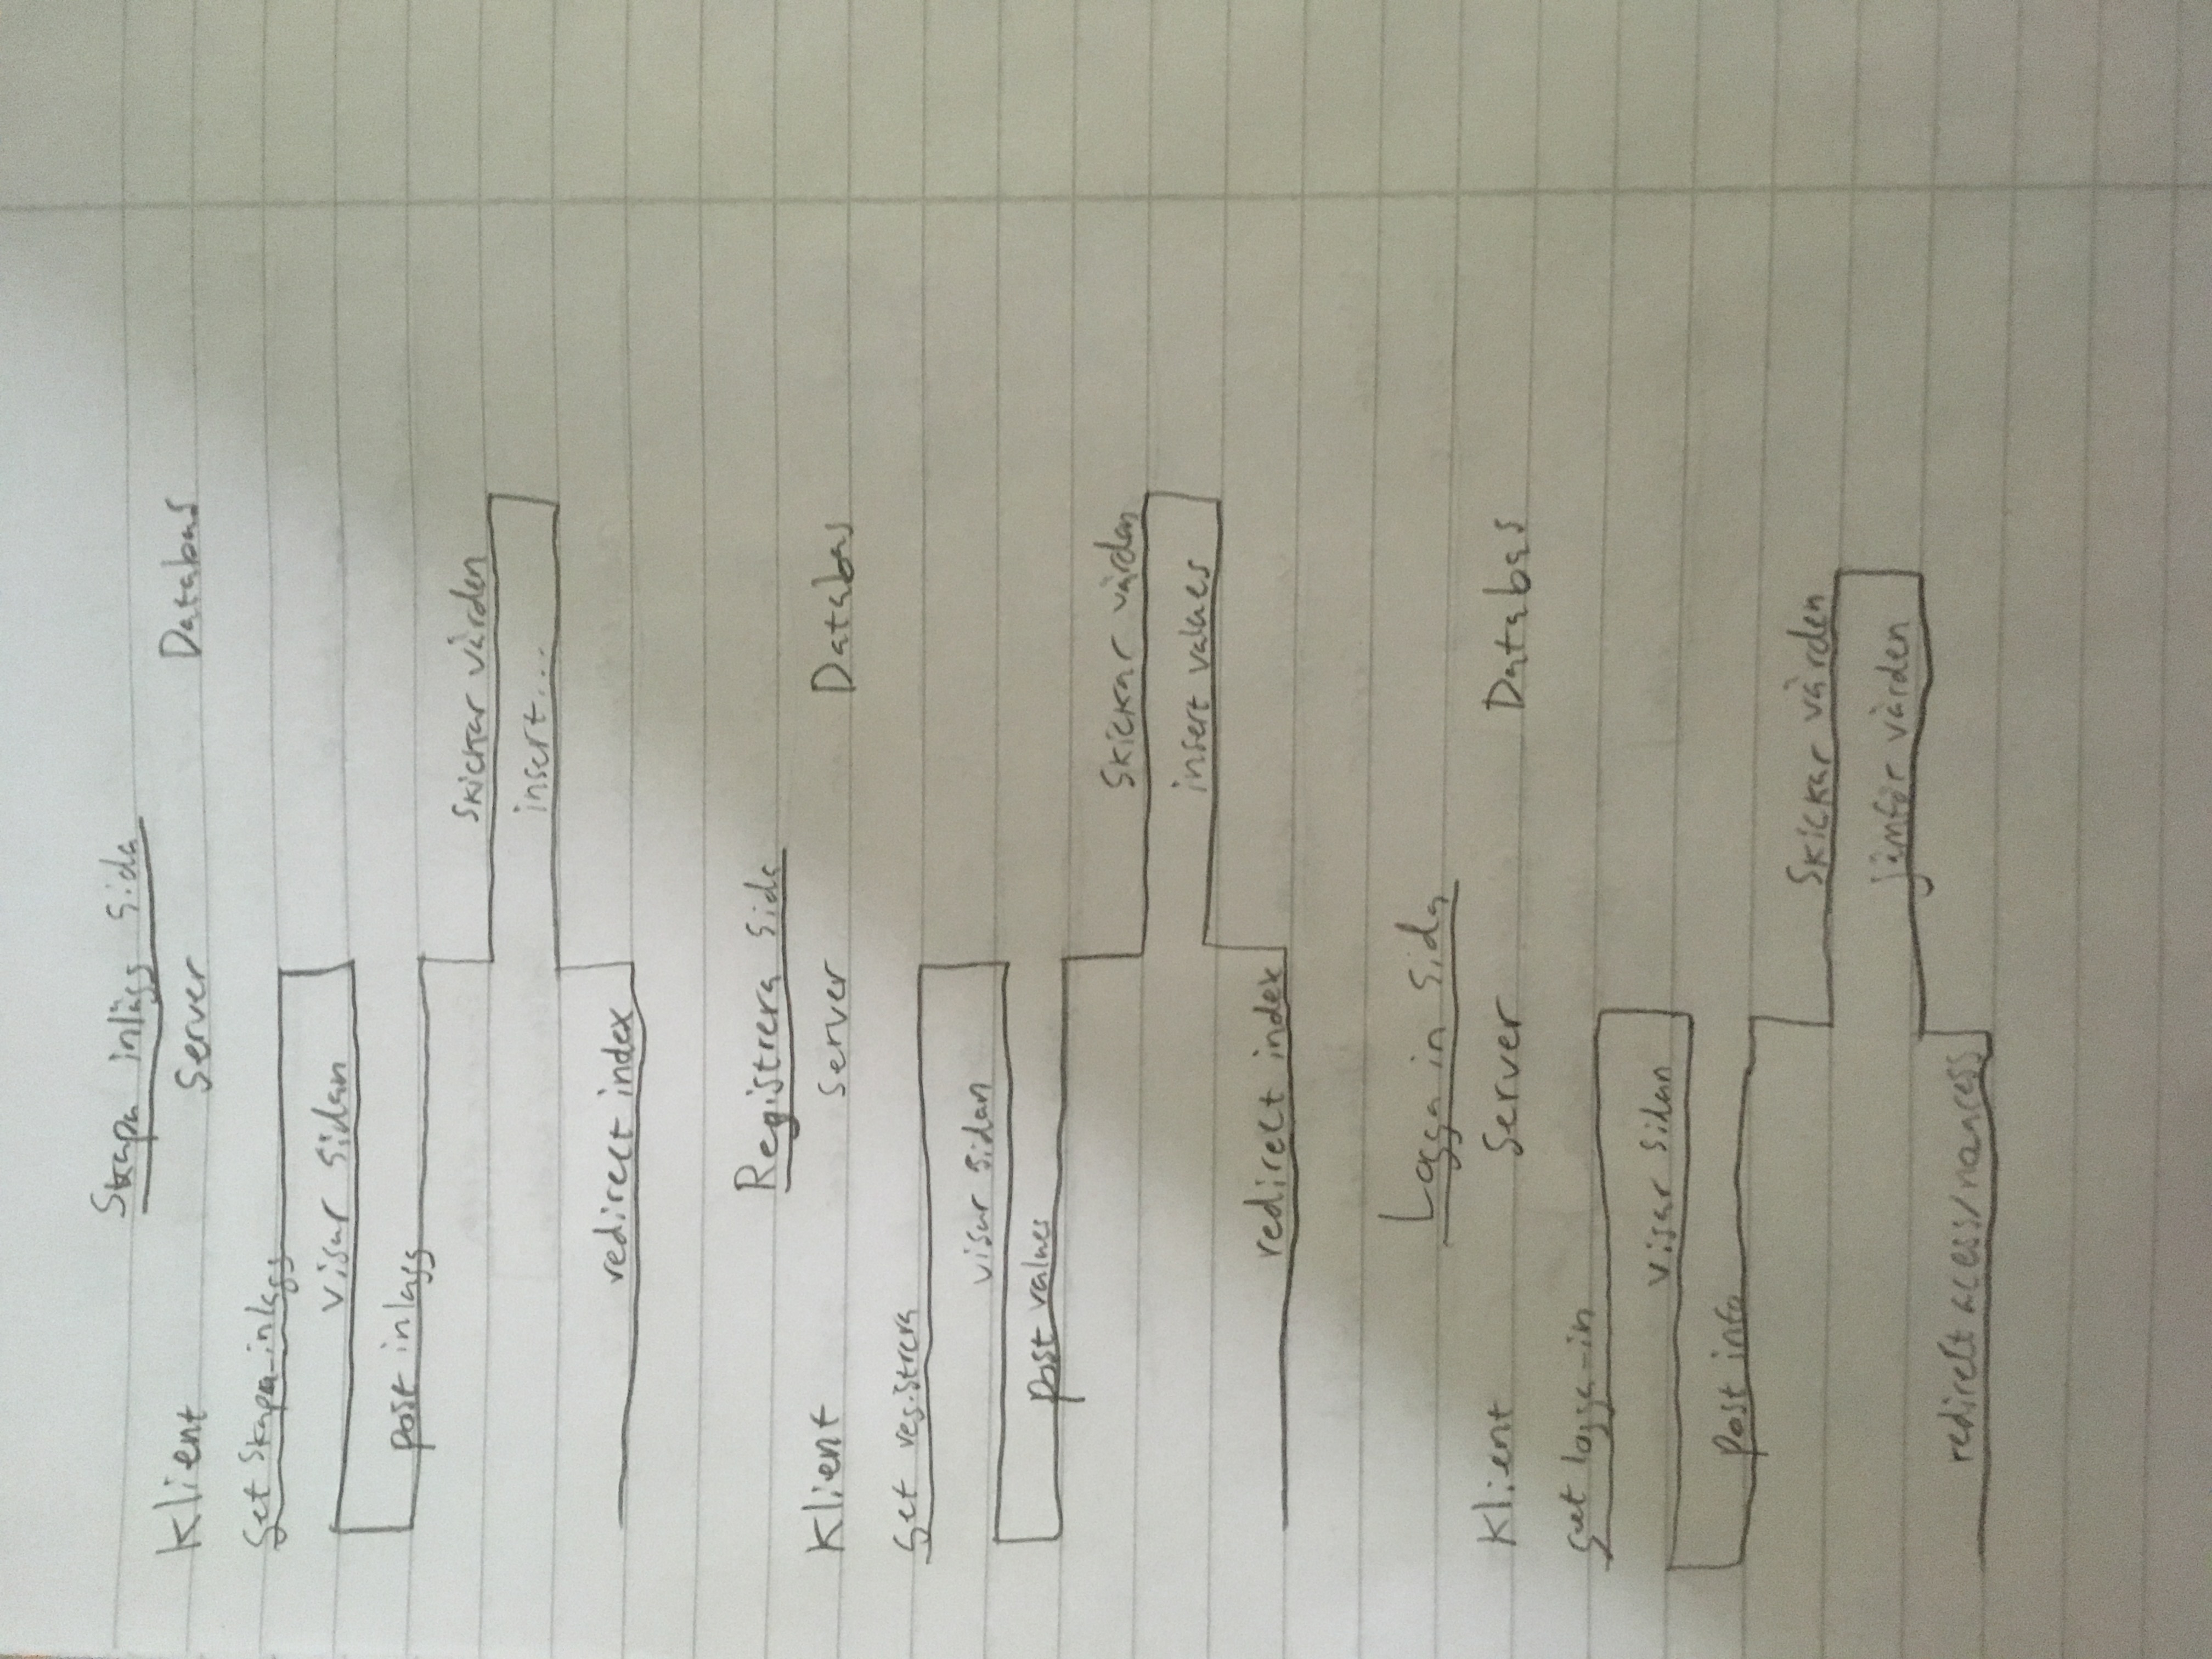 Skapa inlägg sida
Klient Server Databas
get skapa-inlagg
visar sidan
post inlagg
skickar värden
insert...
redirect index
Registrera sida
Klient Server Databas
get registrera
visar sidan
post values
skickar värden
insert values
redirect index
Logga in sida
Klient Server Databas
get logga-in
visar sidan
post info
skickar värden
jämför värden
redirect acess/noacess